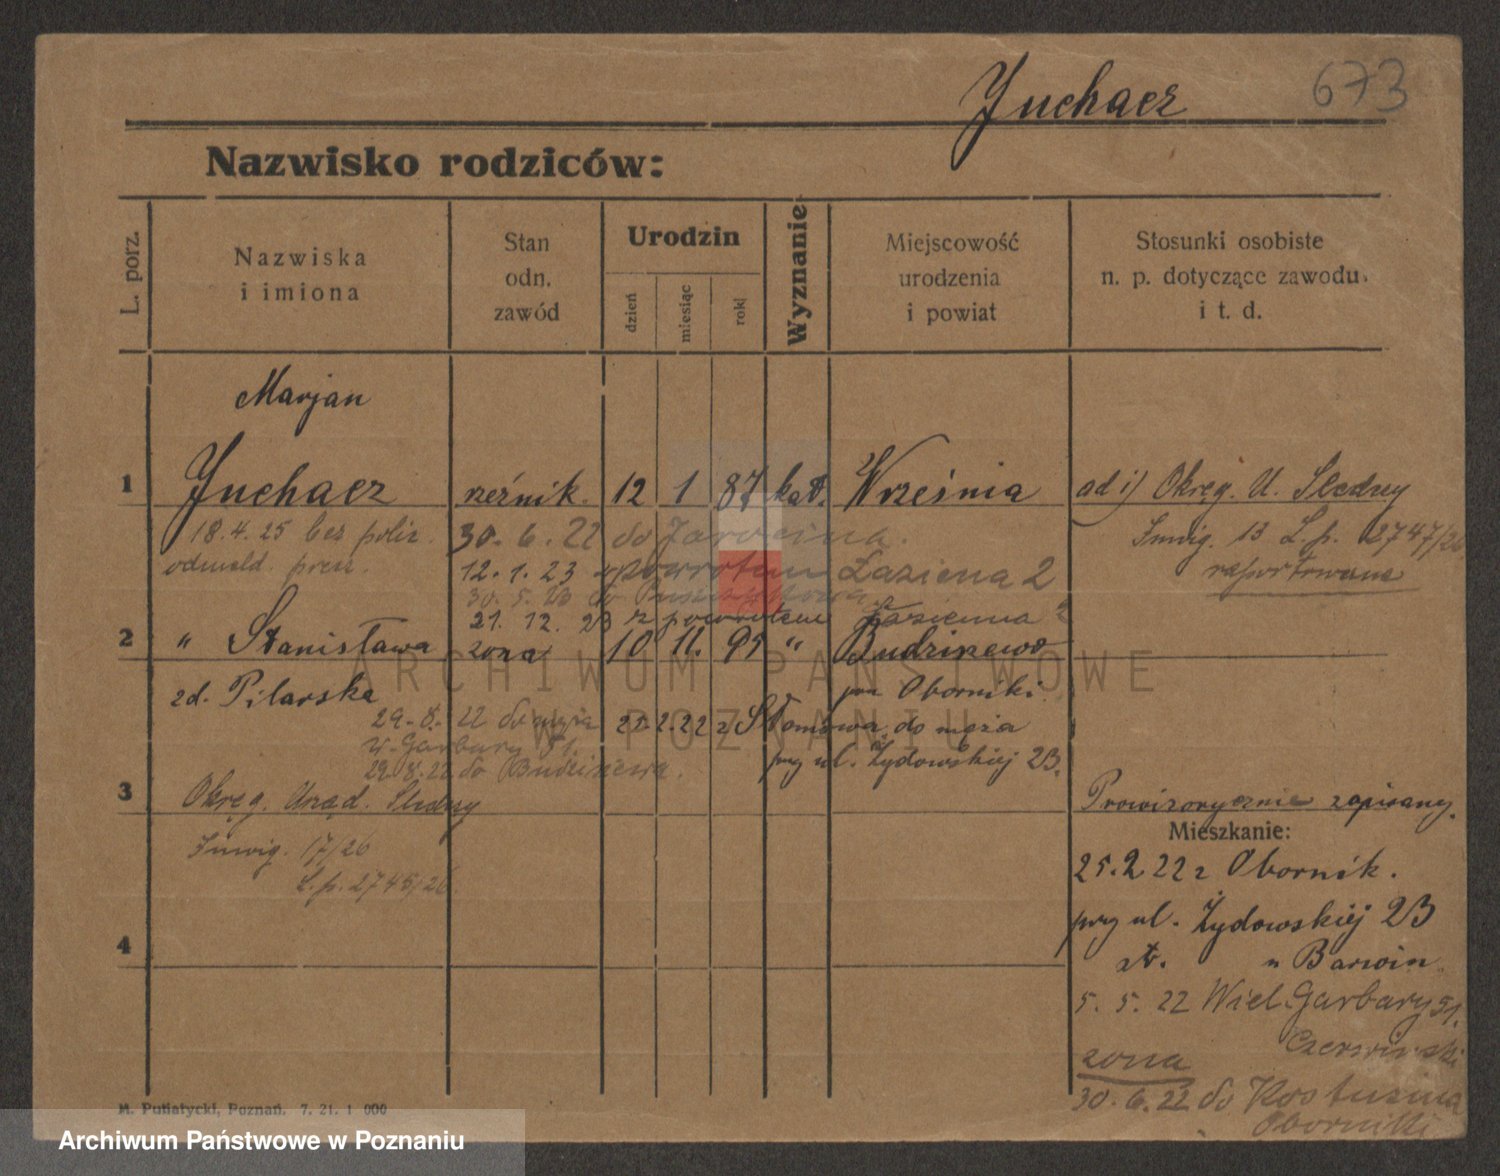 Juchacz 673
Nazwisko rodziców:
L. porz.
Nazwiska
i imiona
Stan
odn.
zawód
Urodzin
dzień
miesiąc
rok
Wyznanie
Miejscowość
urodzenia
i powiat
Stosunki osobiste
n. p. dotyczące zawodu
i t. d.
Marjan
1 Juchacz rzeźnik. 12 1 87 kat. Września ad 1) Okręg. U. Śledczy
18.4.25 bez polic. 30. 6. 22 do Jarocina. Śmig. 13 L. p. 2747/26
odmeld. 12. 1. 23 z powrotem Łazienna 2 raportowane
30. 5. 23 do
21. 12. 23 z powrotem Łazienna 2
2 " Stanisława żona 10 11. 95 " Budziszewo
zd. Pilarska pow Oborniki
29. 8. 22 do męża 21. 2. 22 z Słomowa do męża
W. Garbary 51. przy ul. Żydowskiej 23.
29. 8. 22 do Budziszewa.
3 Okręg. Urząd. Śledczy Prowizorycznie zapisany.
Mieszkanie:
17/26
L. p. 2745/26
25. 2. 22 z Obornik.
przy ul. Żydowskiej 23
4
u Barwin
5. 5. 22 Wiel. Garbary 51.
Czerwiński
żona
30. 6. 22 do
Oborniki
M. Putiatycki, Poznań. 7. 21. 1 000
ARCHIWUM PAŃSTWOWE
W POZNANIU
Archiwum Państwowe w Poznaniu